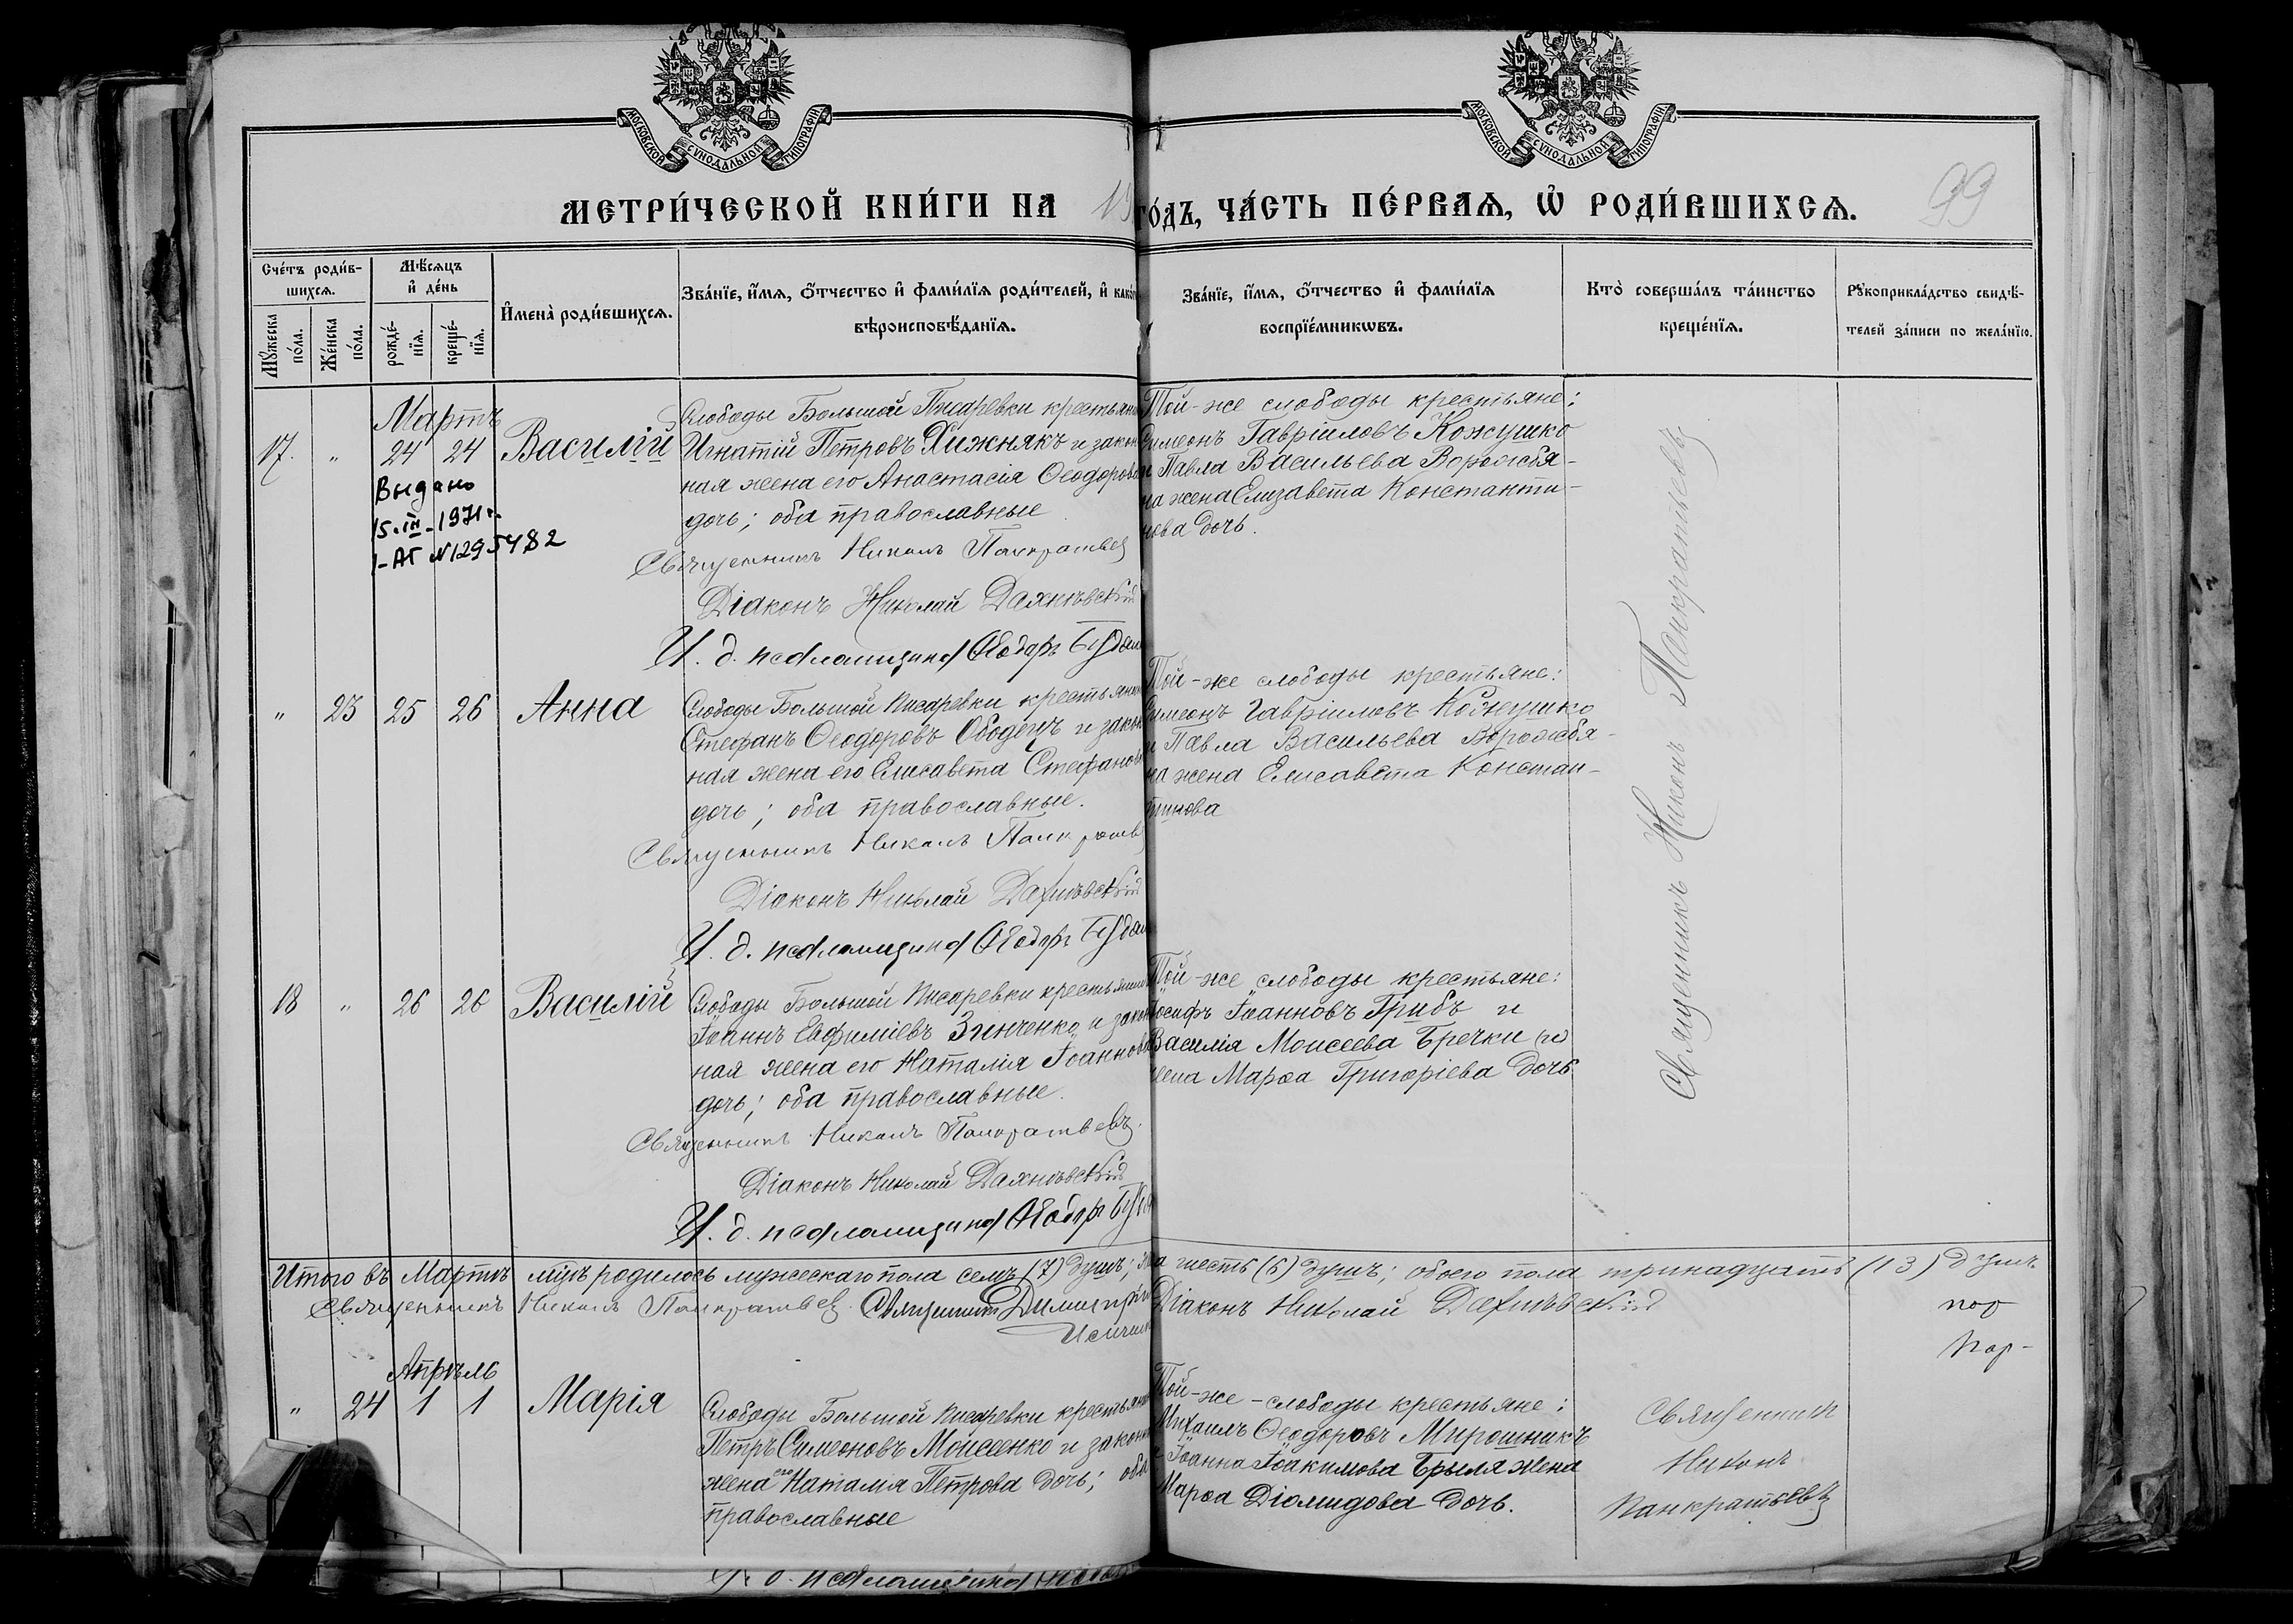 МОСКОВСКОЙ СѴНОДАЛЬНОЙ ТИПОГРАФІИ
МОСКОВСКОЙ СѴНОДАЛЬНОЙ ТИПОГРАФІИ
МЕТРИ́ЧЕСКОЙ КНИ́ГИ НА 19
ГО́ДЪ, ЧА́СТЬ ПЕ́РВАѦ, Ѡ҆ РОДИ́ВШИХСѦ.
99
Сче́тъ роди́в-
шихсѧ.
Мѣ́сѧцъ
и҆ де́нь
Мꙋ́жеска
по́ла.
Же́нска
по́ла.
рожде́-
нїѧ.
креще́-
нїѧ.
И҆мена̀ роди́вшихсѧ.
Зва́нїе, и҆́мѧ, ѻ҆́тчество и҆ фами́лїѧ роди́телей, и҆ како́гѡ
вѣроисповѣ́данїѧ.
Зва́нїе, и҆́мѧ, ѻ҆́тчество и҆ фами́лїѧ
воспрїе́мникѡвъ.
Кто̀ соверша́лъ та́инство
креще́нїѧ.
Рꙋкоприкла́дство свидѣ́-
телей за́писи по жела́нїю.
Мартъ
17. " 24 24 Василій
Выдано
15.III-1971г.
I-АГ №1295482
Слободы Большой Писаревки крестьянинъ
Игнатій Петровъ Хижнякъ и закон
ная жена его Анастасія Ѳеодорова
дочь; оба православные
Священникъ Никонъ Панкратьевъ
Діаконъ Николай
И. д. псаломщика Ѳеодоръ
Той-же слободы крестьяне:
Симеонъ Гавріиловъ Кожушко
и Павла Васильева Ворожбя-
на жена Елизавета Константи-
нова дочь.
Священникъ Никонъ Панкратьевъ
" 23 25 26 Анна
Слободы Большой Писаревки крестьянин
Стефанъ Ѳеодоровъ Ободецъ и закон
ная жена его Елисавета Стефанова
дочь; оба православные.
Священникъ Никонъ Панкратьев
Діаконъ Николай
И. д. псаломщика Ѳеодоръ
Той-же слободы крестьяне:
Симеонъ Гавріиловъ Кожушко
и Павла Васильева Ворожбя-
на жена Елисавета Констан-
тинова
18 " 26 26 Василій
Слободы Большой Писаревки крестьянин
Іоаннъ Евфиміевъ Зинченко и закон
ная жена его Наталія Іоаннова
дочь; оба православные.
Священникъ Никонъ Панкратьевъ.
Діаконъ Николай
И. д. псаломщика Ѳеодоръ
Той-же слободы крестьяне:
Іосифъ Іоанновъ Грибъ и
Василія Моисеева Бречки
жена Марѳа Григоріева дочь
Итого въ Мартѣ м-цѣ родилось мужескаго пола семь (7) душъ;
на шесть (6) душъ; обоего пола тринадцать (13) душъ.
Священникъ Никонъ Панкратьевъ. Священникъ Димитрій
Діаконъ Николай
Апрѣль
" 24 1 1 Марія
Слободы Большой Писаревки крестьянин
Петръ Симеоновъ Моисеенко и законн
жена его Наталія Петрова дочь; оба
православные
Той-же-слободы крестьяне:
Михаилъ Ѳеодоровъ Мирошникъ
и Іоанна Іоакимова Брыля жена
Марѳа Діомидова дочь.
Священникъ
Никонъ
Панкратьевъ
И. д. псаломщика